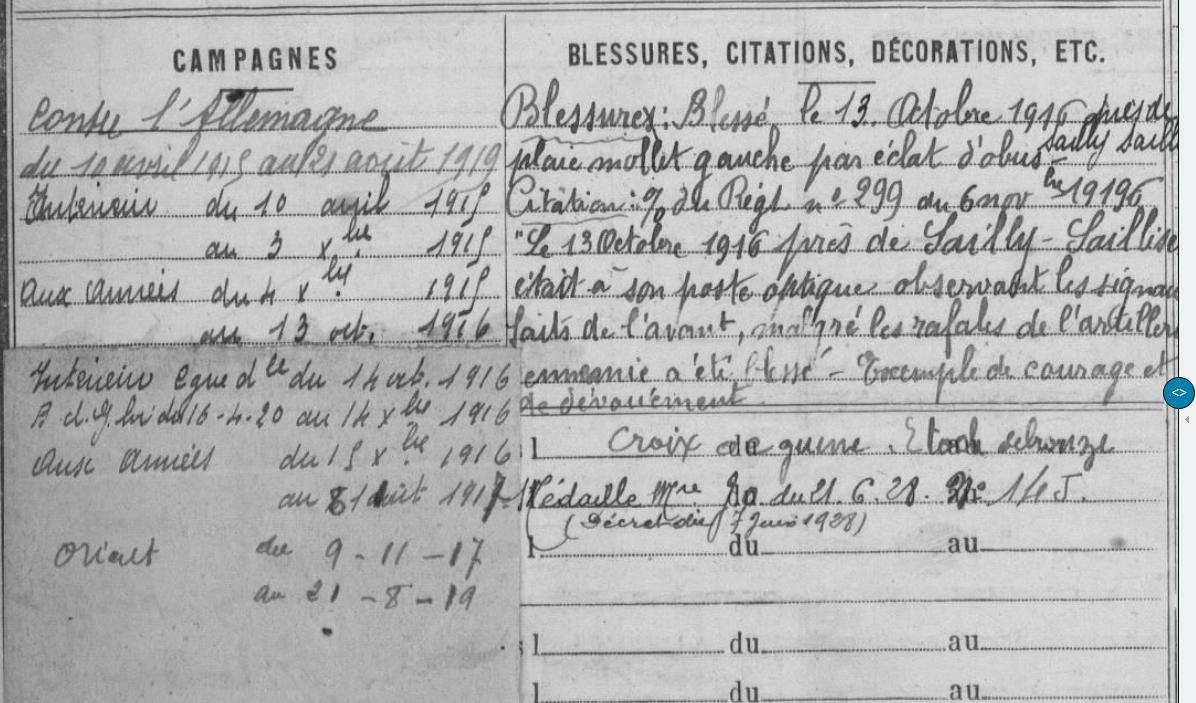 CAMPAGNES
contre l'Allemagne
du 10 avril 1915 au 21 août 1919
Intérieur du 10 avril 1915
au 3 xbre 1915
Aux Armées du 4 xbre 1915
au 13 oct. 1916
Intérieur Cgne dle du 14 oct. 1916
au 14 xbre 1916
Aux Armées du 15 xbre 1916
au 8 1917
Orient du 9-11-17
au 21-8-19
BLESSURES, CITATIONS, DÉCORATIONS, ETC.
Blessures: Blessé le 13 Octobre 1916 près de
Sailly Saill
plaie mollet gauche par éclat d'obus-
Citation: % du Régt nº 299 du 6 nov bre 19196
"Le 13 Octobre 1916 près de Sailly-Saillise
était à son poste optique observant les signau
faits de l'avant, malgré les rafales de l'artiller
ennemie a été blessé - Exemple de courage et
de dévouement.
Croix de guerre. Etoile de bronze
Médaille Mre du 21.6.28. 145.
(Décret du 7 Juin 1928)
du au
l du au
l du au